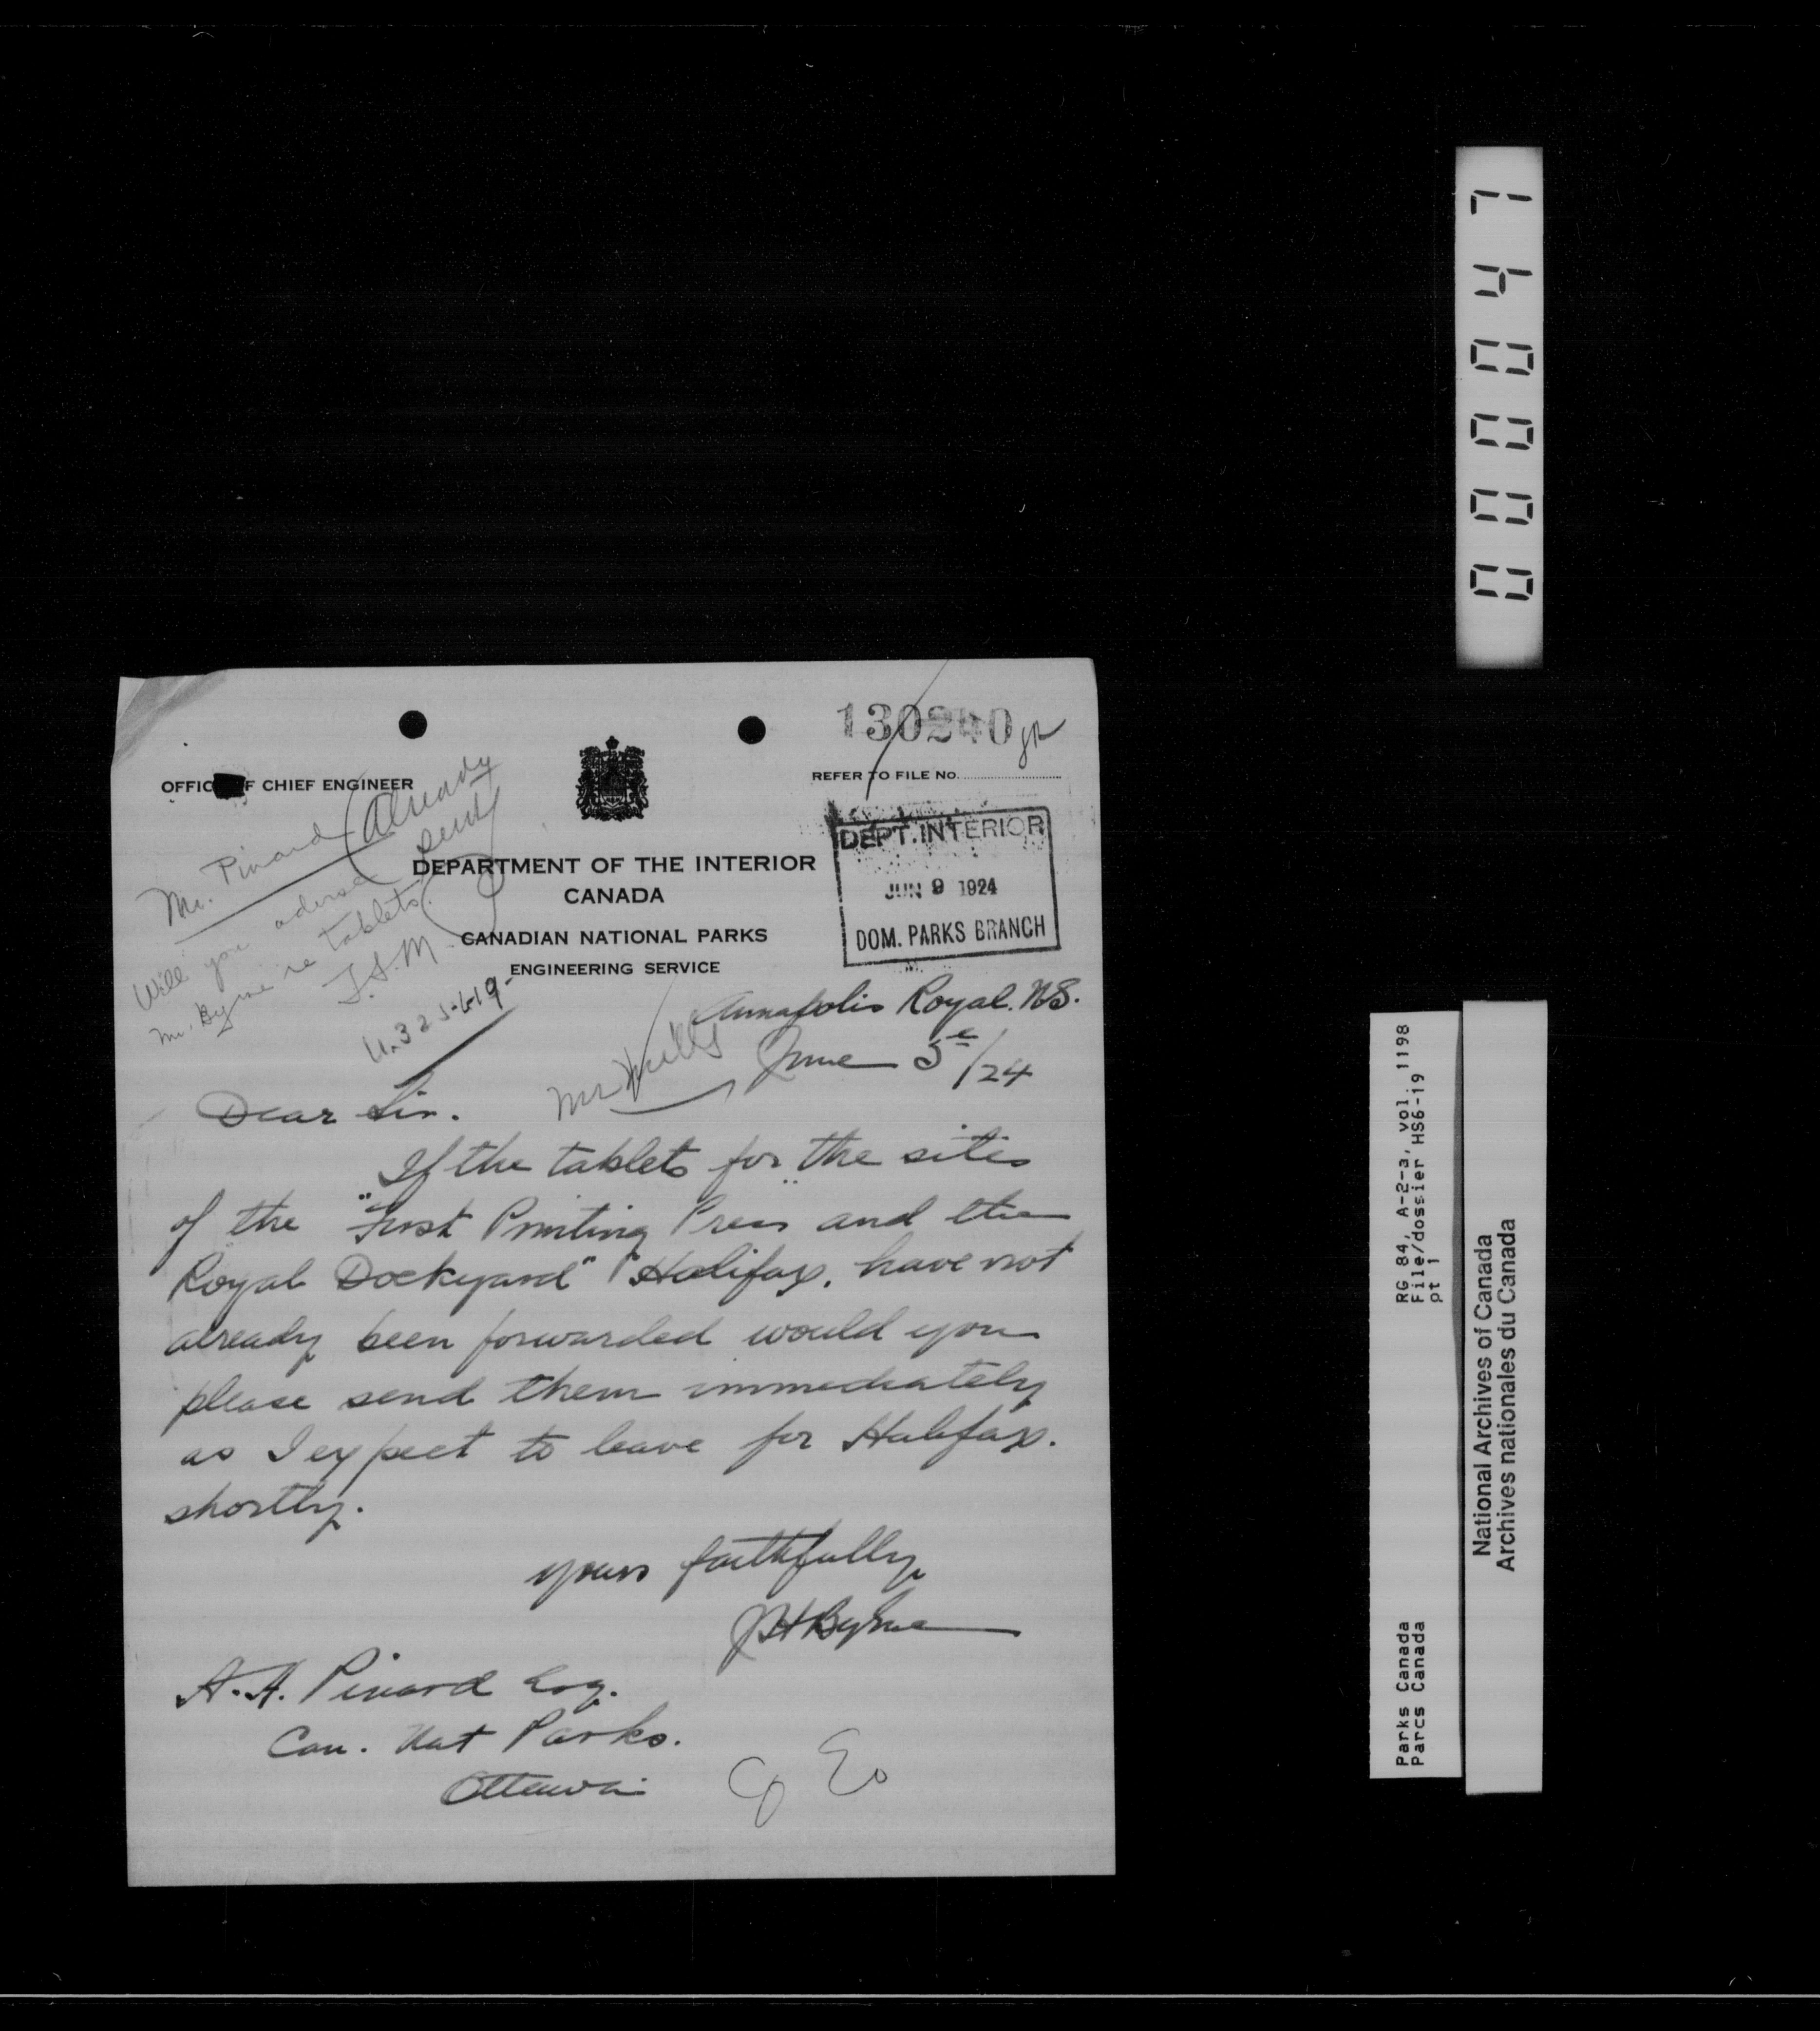 130240
OFFICE OF CHIEF ENGINEER
REFER TO FILE No.
Mr. Pinard
(Already
sent)
Will you advise
Mr. Byrne re tablets.
DEPARTMENT OF THE INTERIOR
CANADA
CANADIAN NATIONAL PARKS
ENGINEERING SERVICE
DEPT. INTERIOR
JUN 9 1924
DOM. PARKS BRANCH
Annapolis Royal. N.S.
June 5th/24
Dear Sir.
If the tablets for the sites
of the "First Printing Press and the
Royal Dockyard" "Halifax, have not
already been forwarded would you
please send them immediately
as I expect to leave for Halifax.
shortly.
yours faithfully,
JHByrne
A.A. Pinard Esq.
Can. Nat Parks.
Ottawa
000047
RG 84, A-2-3, vol. 1198
File/dossier HS6-19
pt 1
Parks Canada
Parcs Canada
National Archives of Canada
Archives nationales du Canada